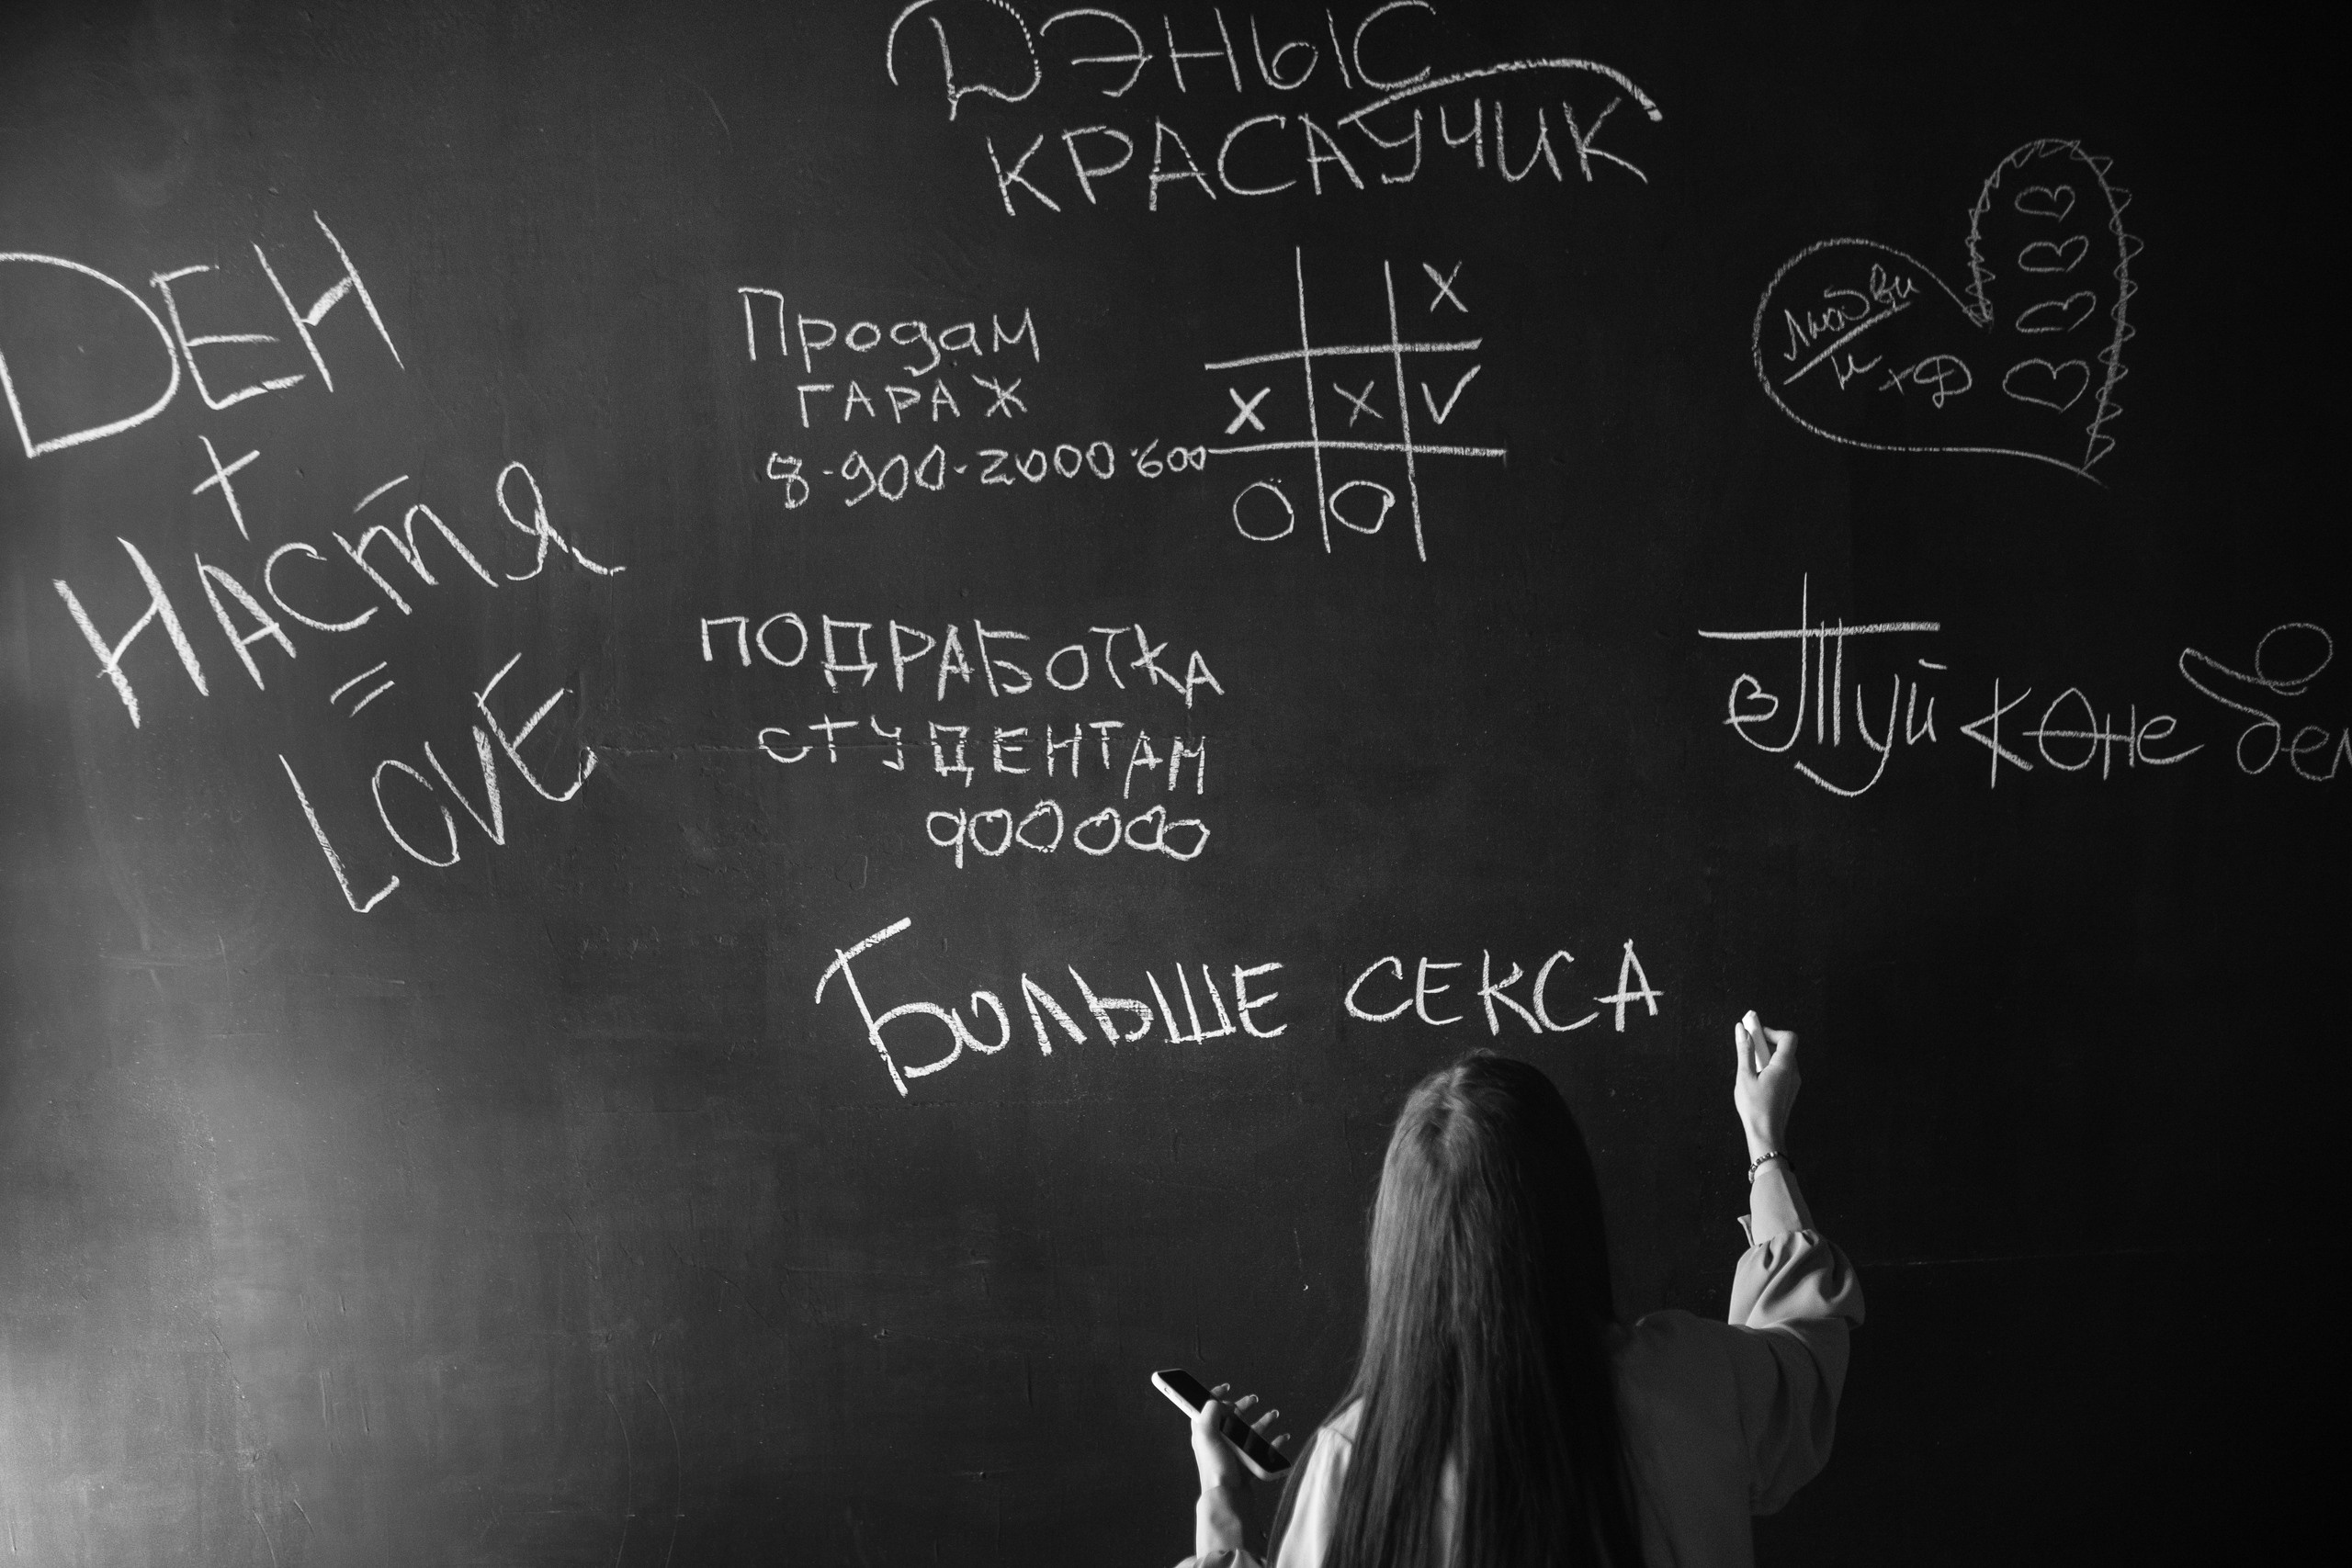 ДЭНЫС
КРАСАУЧИК
DЕН
+
НАСТЯ
=
LOVE
Продам
ГАРАЖ
8-900-2000-600
X
X X V
O O
Любви
Н+Ф
ПОДРАБОТКА
СТУДЕНТАМ
900000
БОЛЬШЕ СЕКСА